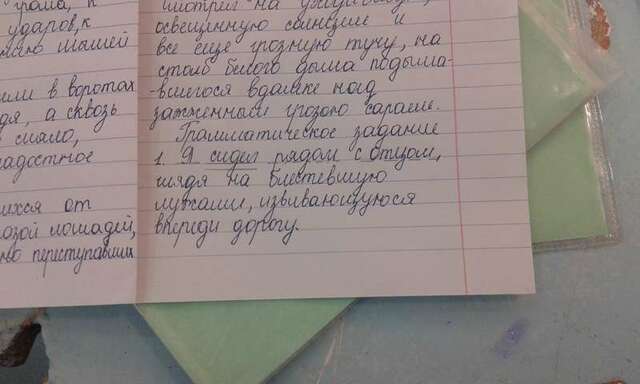 грома, к
ударов, к
шашей
в воротах
а сквозь
сияло,
радостное
от
лошадей,
переступавших
смотрел на
освещинную солнцем и
все ещё грозную тучу, на
столб белого дыма подыма-
вшегося вдалике над
зажжёным грозою сараем.
Грамматическое задание
1. Я сидел рядом с отцом,
глядя на блестевшую
лужами, извивающуюся
впереди дорогу.